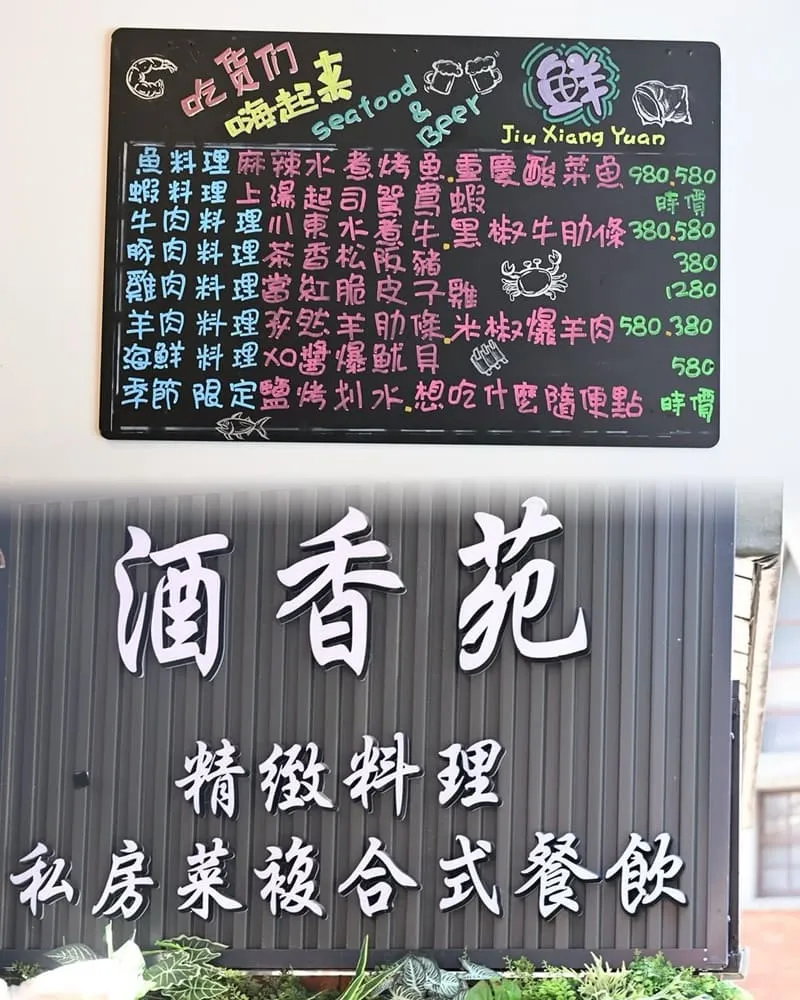 吃货们
嗨起来
Seafood
&
Beer
鮮
Jiu Xiang Yuan
魚料理 麻辣水煮烤魚.重慶酸菜魚 980.580
蝦料理 上湯起司鴛鴦蝦 時價
牛肉料理 川東水煮牛.黑椒牛肋條 380.580
豚肉料理 茶香松阪豬 380
雞肉料理 當紅脆皮子雞 1280
羊肉料理 孜然羊肋條.米椒爆羊肉 580.380
海鮮料理 XO醬爆魷貝 580
季節限定 鹽烤划水.想吃什麼隨便點 時價
酒香苑
精緻料理
私房菜複合式餐飲